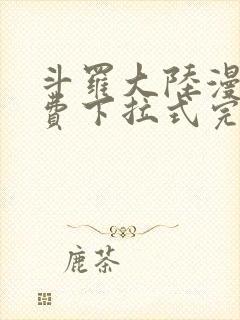 斗羅大陸漫
費下拉式完
鹿茶